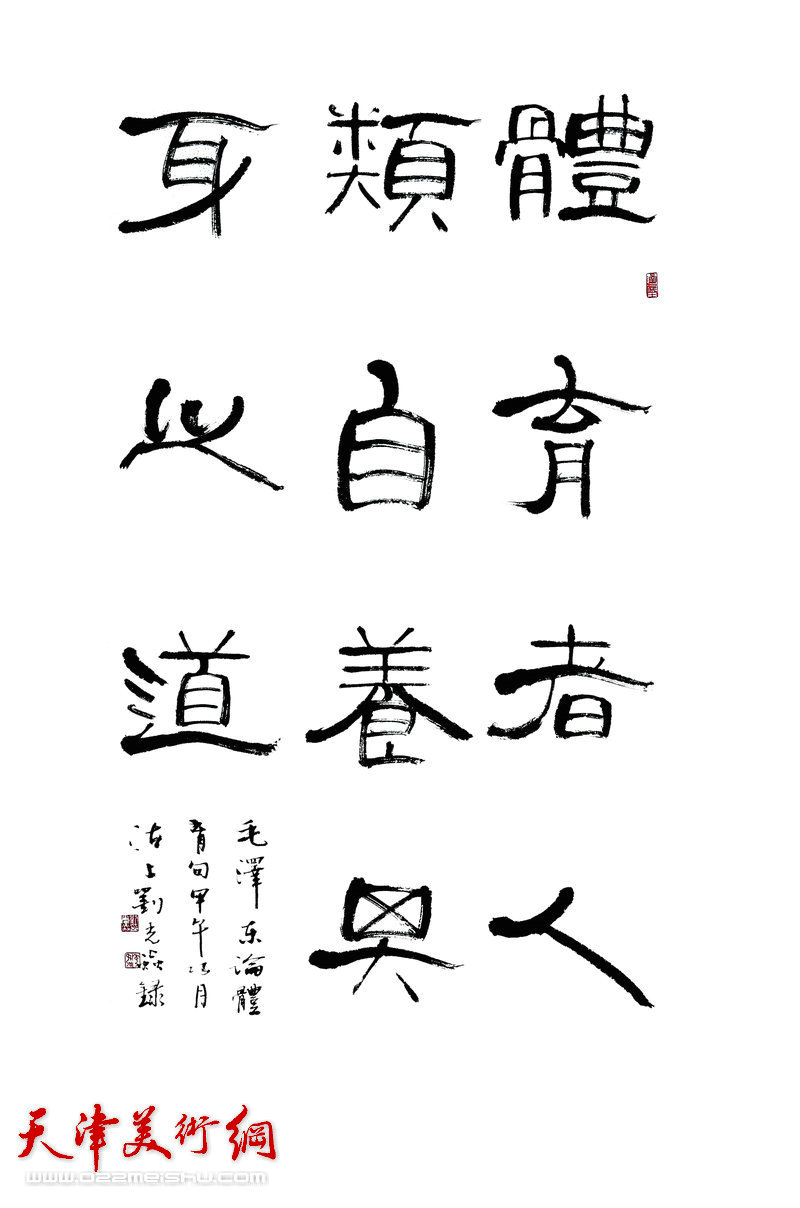 體育者人
類自養其
身之道
毛澤東論體
育句甲午月
沽上劉光錄
天津美術網
www.022meishu.com